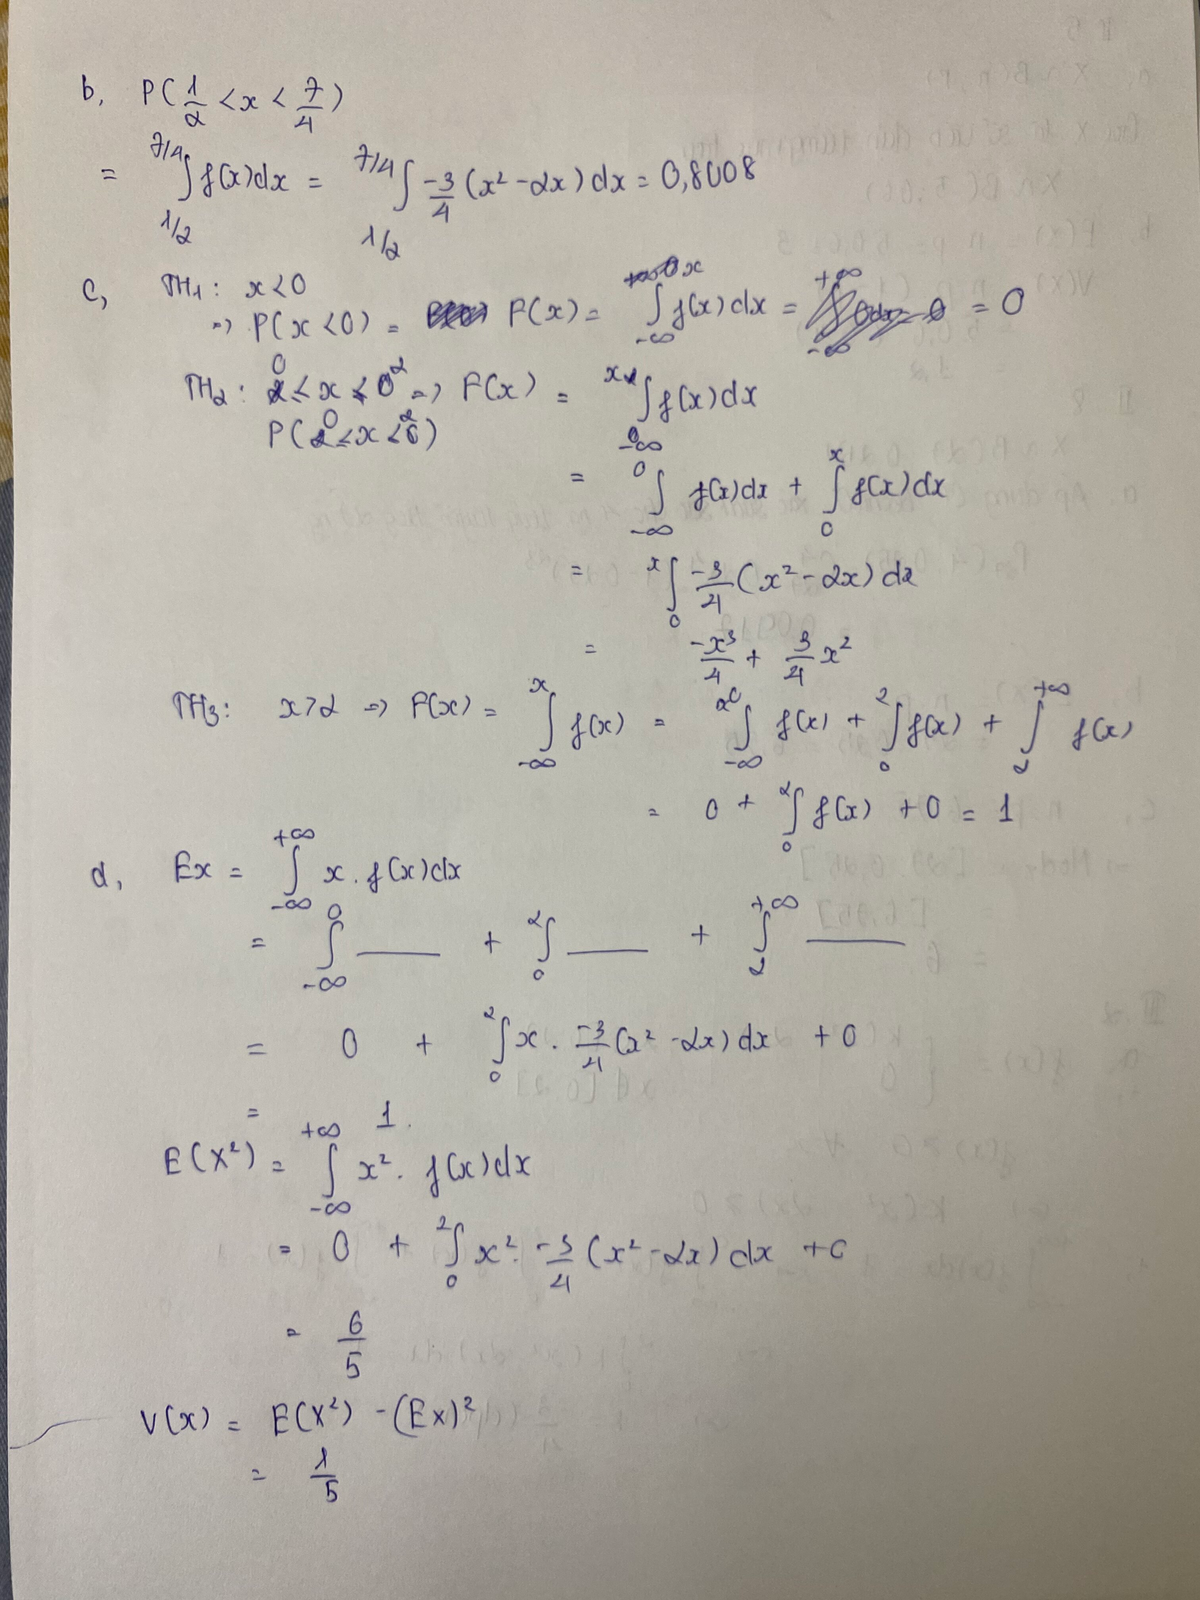 b, P(1/2 < x < 7/4)
= ∫_{1/2}^{7/4} f(x)dx = ∫_{1/2}^{7/4} -3/4 (x² - 2x) dx = 0,8008
c, TH1: x < 0
=> P(x < 0) = F(x) = ∫_{-∞}^{x} f(x) dx = = 0
TH2: 0 ≤ x ≤ 2 => F(x) = ∫_{-∞}^{x} f(x)dx
P(0 ≤ x < 2)
= ∫_{-∞}^{0} f(x)dx + ∫_{0}^{x} f(x)dx
= ∫_{0}^{x} -3/4 (x² - 2x) dx
= -x³/4 + 3/4 x²
TH3: x > 2 => F(x) = ∫_{-∞}^{x} f(x) = ∫_{-∞}^{0} f(x) + ∫_{0}^{2} f(x) + ∫_{2}^{+∞} f(x)
= 0 + ∫_{0}^{2} f(x) + 0 = 1
d, Ex = ∫_{-∞}^{+∞} x . f(x)dx
= ∫_{-∞}^{0} ___ + ∫_{0}^{2} ___ + ∫_{2}^{+∞} ___
= 0 + ∫_{0}^{2} x . -3/4 (x² - 2x) dx + 0
= 1.
E(X²) = ∫_{-∞}^{+∞} x² . f(x)dx
= 0 + ∫_{0}^{2} x² . -3/4 (x² - 2x) dx + 0
= 6/5
V(x) = E(X²) - (Ex)²
= 1/5